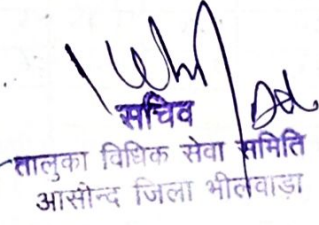 सचिव
तालुका विधिक सेवा समिति
आसीन्द जिला भीलवाड़ा